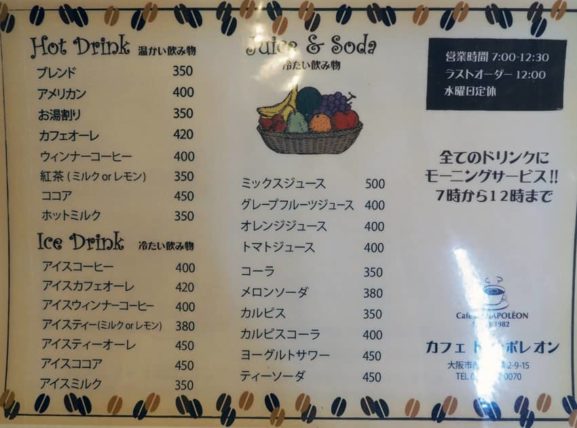 Hot Drink 温かい飲み物
ブレンド 350
アメリカン 400
お湯割り 350
カフェオーレ 420
ウィンナーコーヒー 400
紅茶 (ミルク or レモン) 350
ココア 450
ホットミルク 350
Ice Drink 冷たい飲み物
アイスコーヒー 400
アイスカフェオーレ 420
アイスウィンナーコーヒー 400
アイスティー(ミルク or レモン) 380
アイスティーオーレ 450
アイスココア 450
アイスミルク 350
Juice & Soda
冷たい飲み物
ミックスジュース 500
グレープフルーツジュース 400
オレンジジュース 400
トマトジュース 400
コーラ 350
メロンソーダ 380
カルピス 350
カルピスコーラ 400
ヨーグルトサワー 450
ティーソーダ 450
営業時間 7:00-12:30
ラストオーダー 12:00
水曜日定休
全てのドリンクに
モーニングサービス!!
7時から12時まで
カフェ ド ポレオン
大阪市 2-9-15
TEL 0070